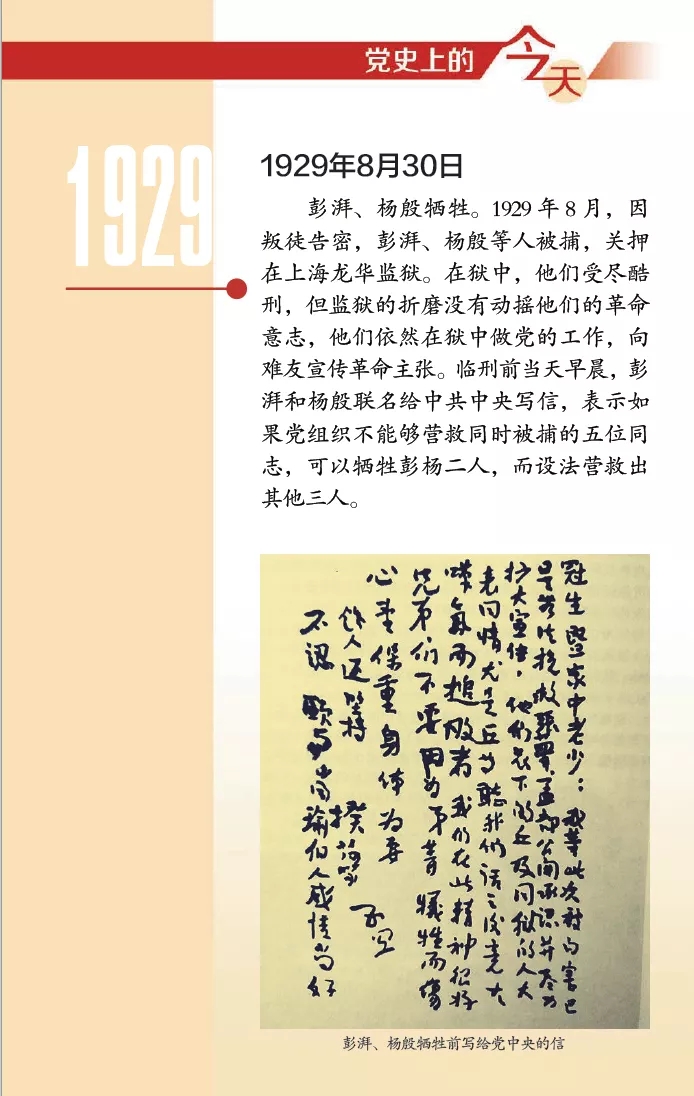 党史上的今天
1929
1929年8月30日
彭湃、杨殷牺牲。1929年8月，因
叛徒告密，彭湃、杨殷等人被捕，关押
在上海龙华监狱。在狱中，他们受尽酷
刑，但监狱的折磨没有动摇他们的革命
意志，他们依然在狱中做党的工作，向
难友宣传革命主张。临刑前当天早晨，彭
湃和杨殷联名给中共中央写信，表示如
果党组织不能够营救同时被捕的五位同
志，可以牺牲彭杨二人，而设法营救出
其他三人。
冠生暨家中老少：我等此次被白害已
是无法挽救 孟都公開承認并尽力
扩大宣传。他们底下的丘及同狱的人大
表同情尤是丘等聽我们话之後竟大
嘆氣而搥胸者我们在此精神很好
兄弟们不要因为弟等犧牲而傷
心 保重身体为要
余人还坚持 揆
不認 瑜伯人感情尚好
彭湃、杨殷牺牲前写给党中央的信